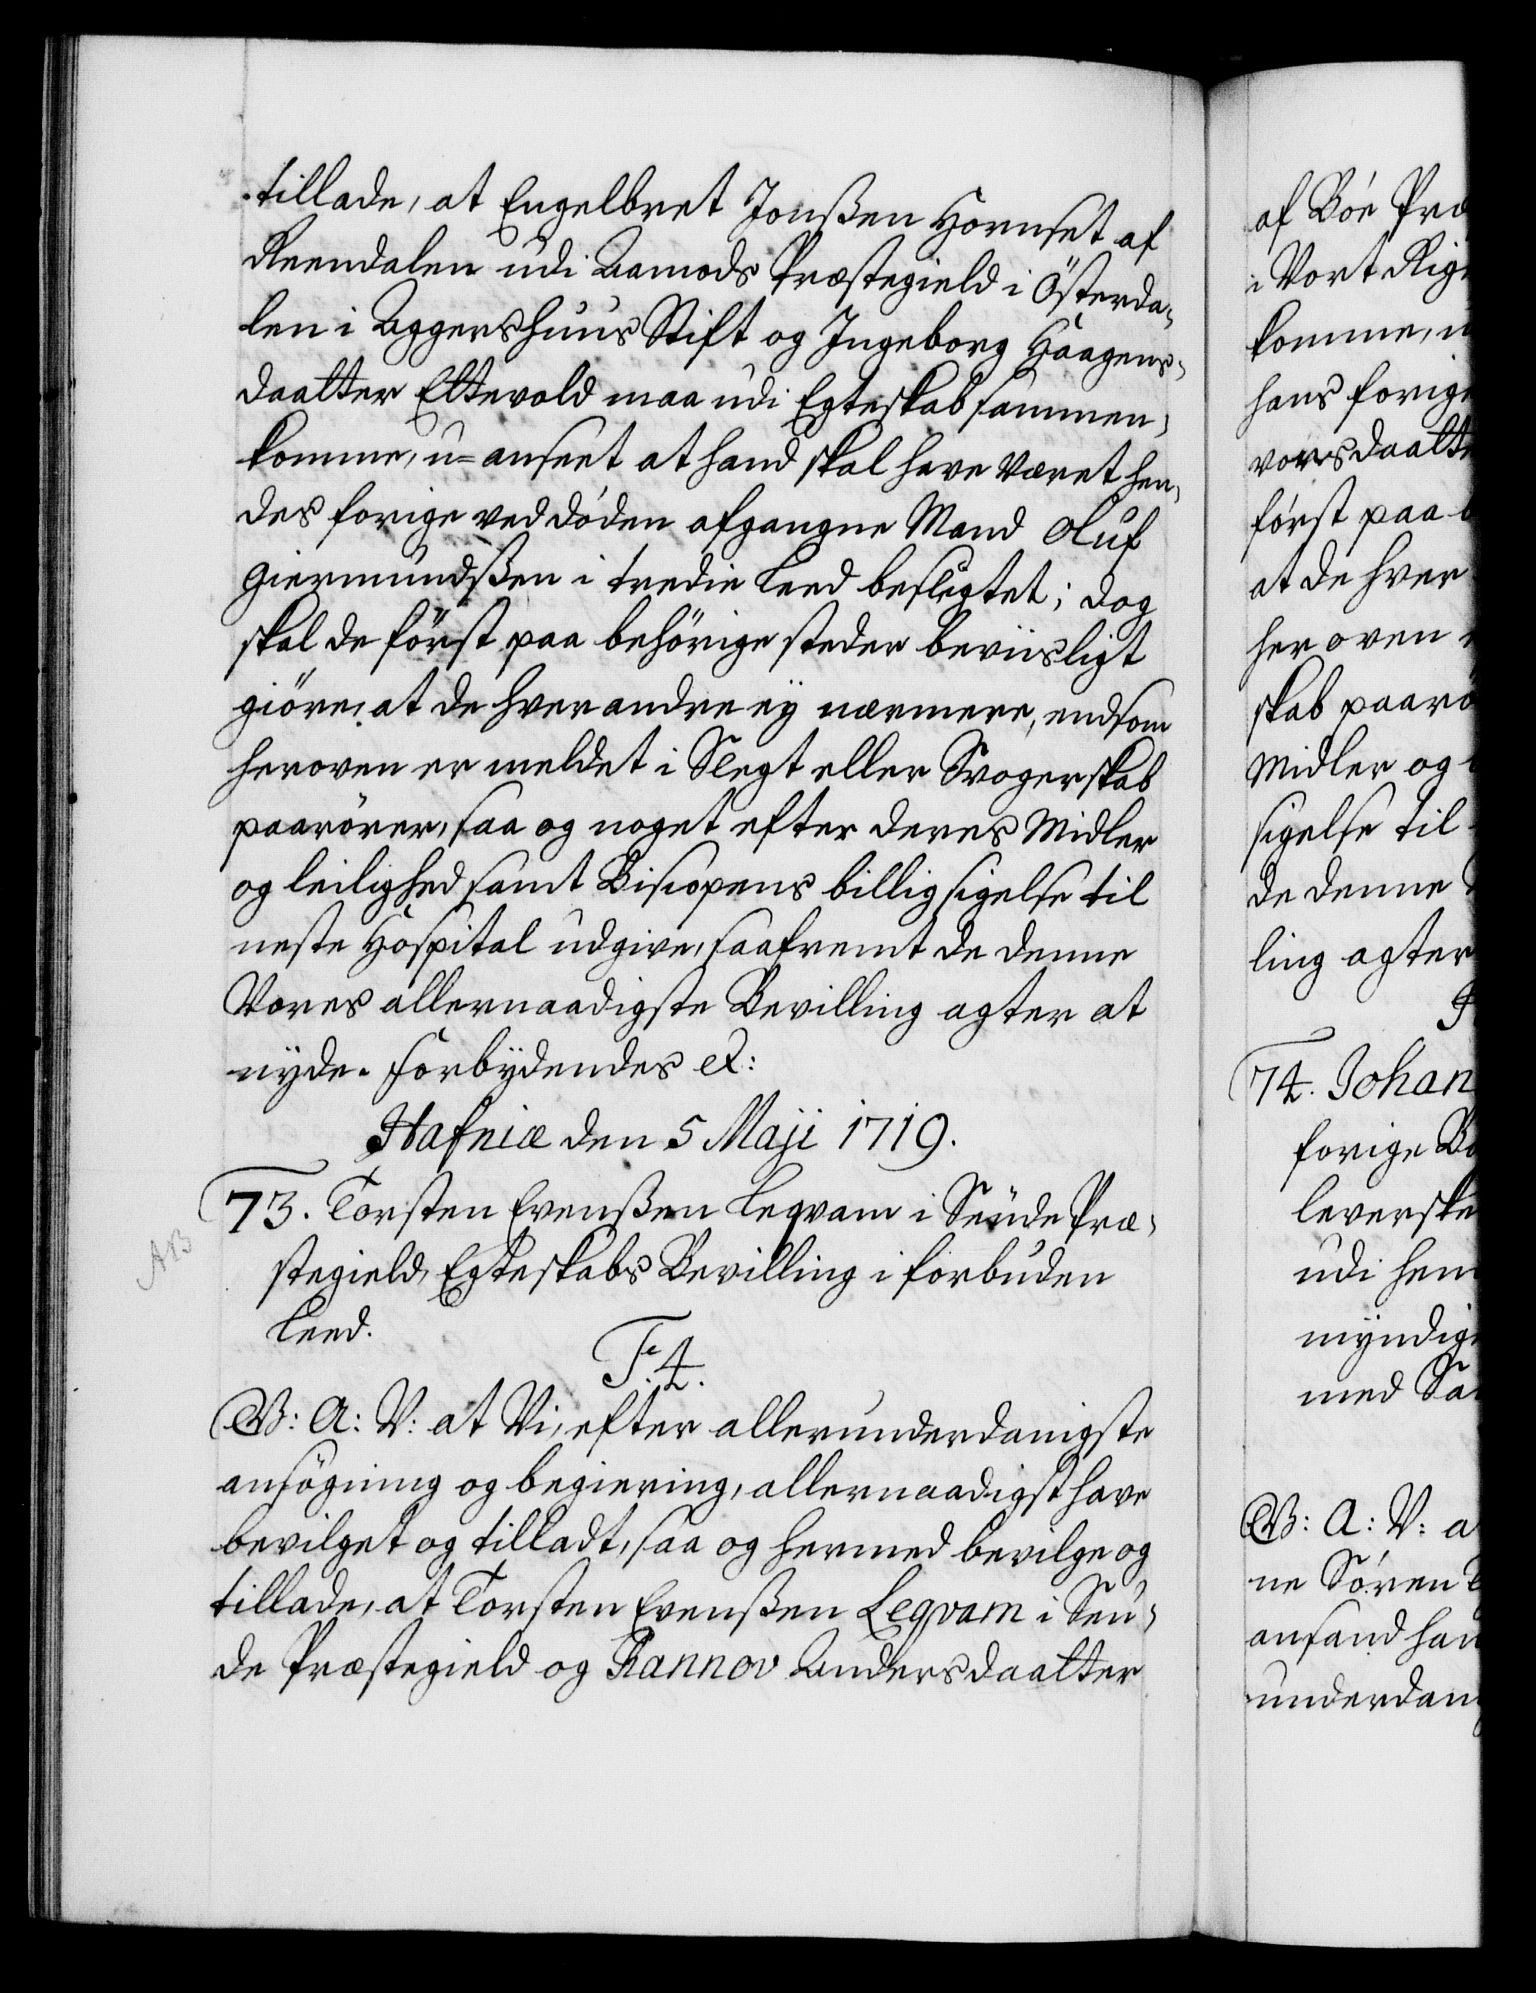 tillade, at Engelbret Jonßen Hornset af
Reendalen udi Aamods Præstegield i Österda-
len i Aggershuus Stift og Ingeborg Haagens-
daatter Eltevold maa udi Egteskab sammen-
komme, u-anseet at hand skal have været hen-
des forige ved döden afgangne Mand Oluf
Giermundßen i tredie Leed beslegtet; dog
skal de först paa behörige steder beviisligt
giöre, at de hverandre ej nærmere, end som
heroven er meldet i Slegt eller Svogerskab
paarörer, saa og noget efter deres Midler
og leilighed samt Biscopens billigsigelse til
neste Hospital udgive, saafremt de denne
Vores allernaadigste Bevilling agter at
nyde. Forbydendes etc:
Hafniæ den 5 Maji 1719.
73. Torsten Evenßen Leqvam i Seude Præ-
AB
stegield, Egteskabs Bevilling i forbuden
Leed.
F. 4.
G. A: V: at Vi, efter allerunderdanigste
ansögning og begiering, allernaadigst have
bevilget og tilladt, saa og hermed bevilge og
tillade, at Torsten Evenßen Leqvam i Seu-
de Præstegield og Rannov Andersdaatter
af Böe Præ
i Vort Rige
komme, u
hans forige
vorsdaatte
först paa b
at de hver
heroven
skab paarö
Midler og
sigelse til
de denne
ling agter
74. Johan
forige Bo
leverske
udi hen
myndige
med Sa
G. A: V: a
ne Sören
ansand han
underdan